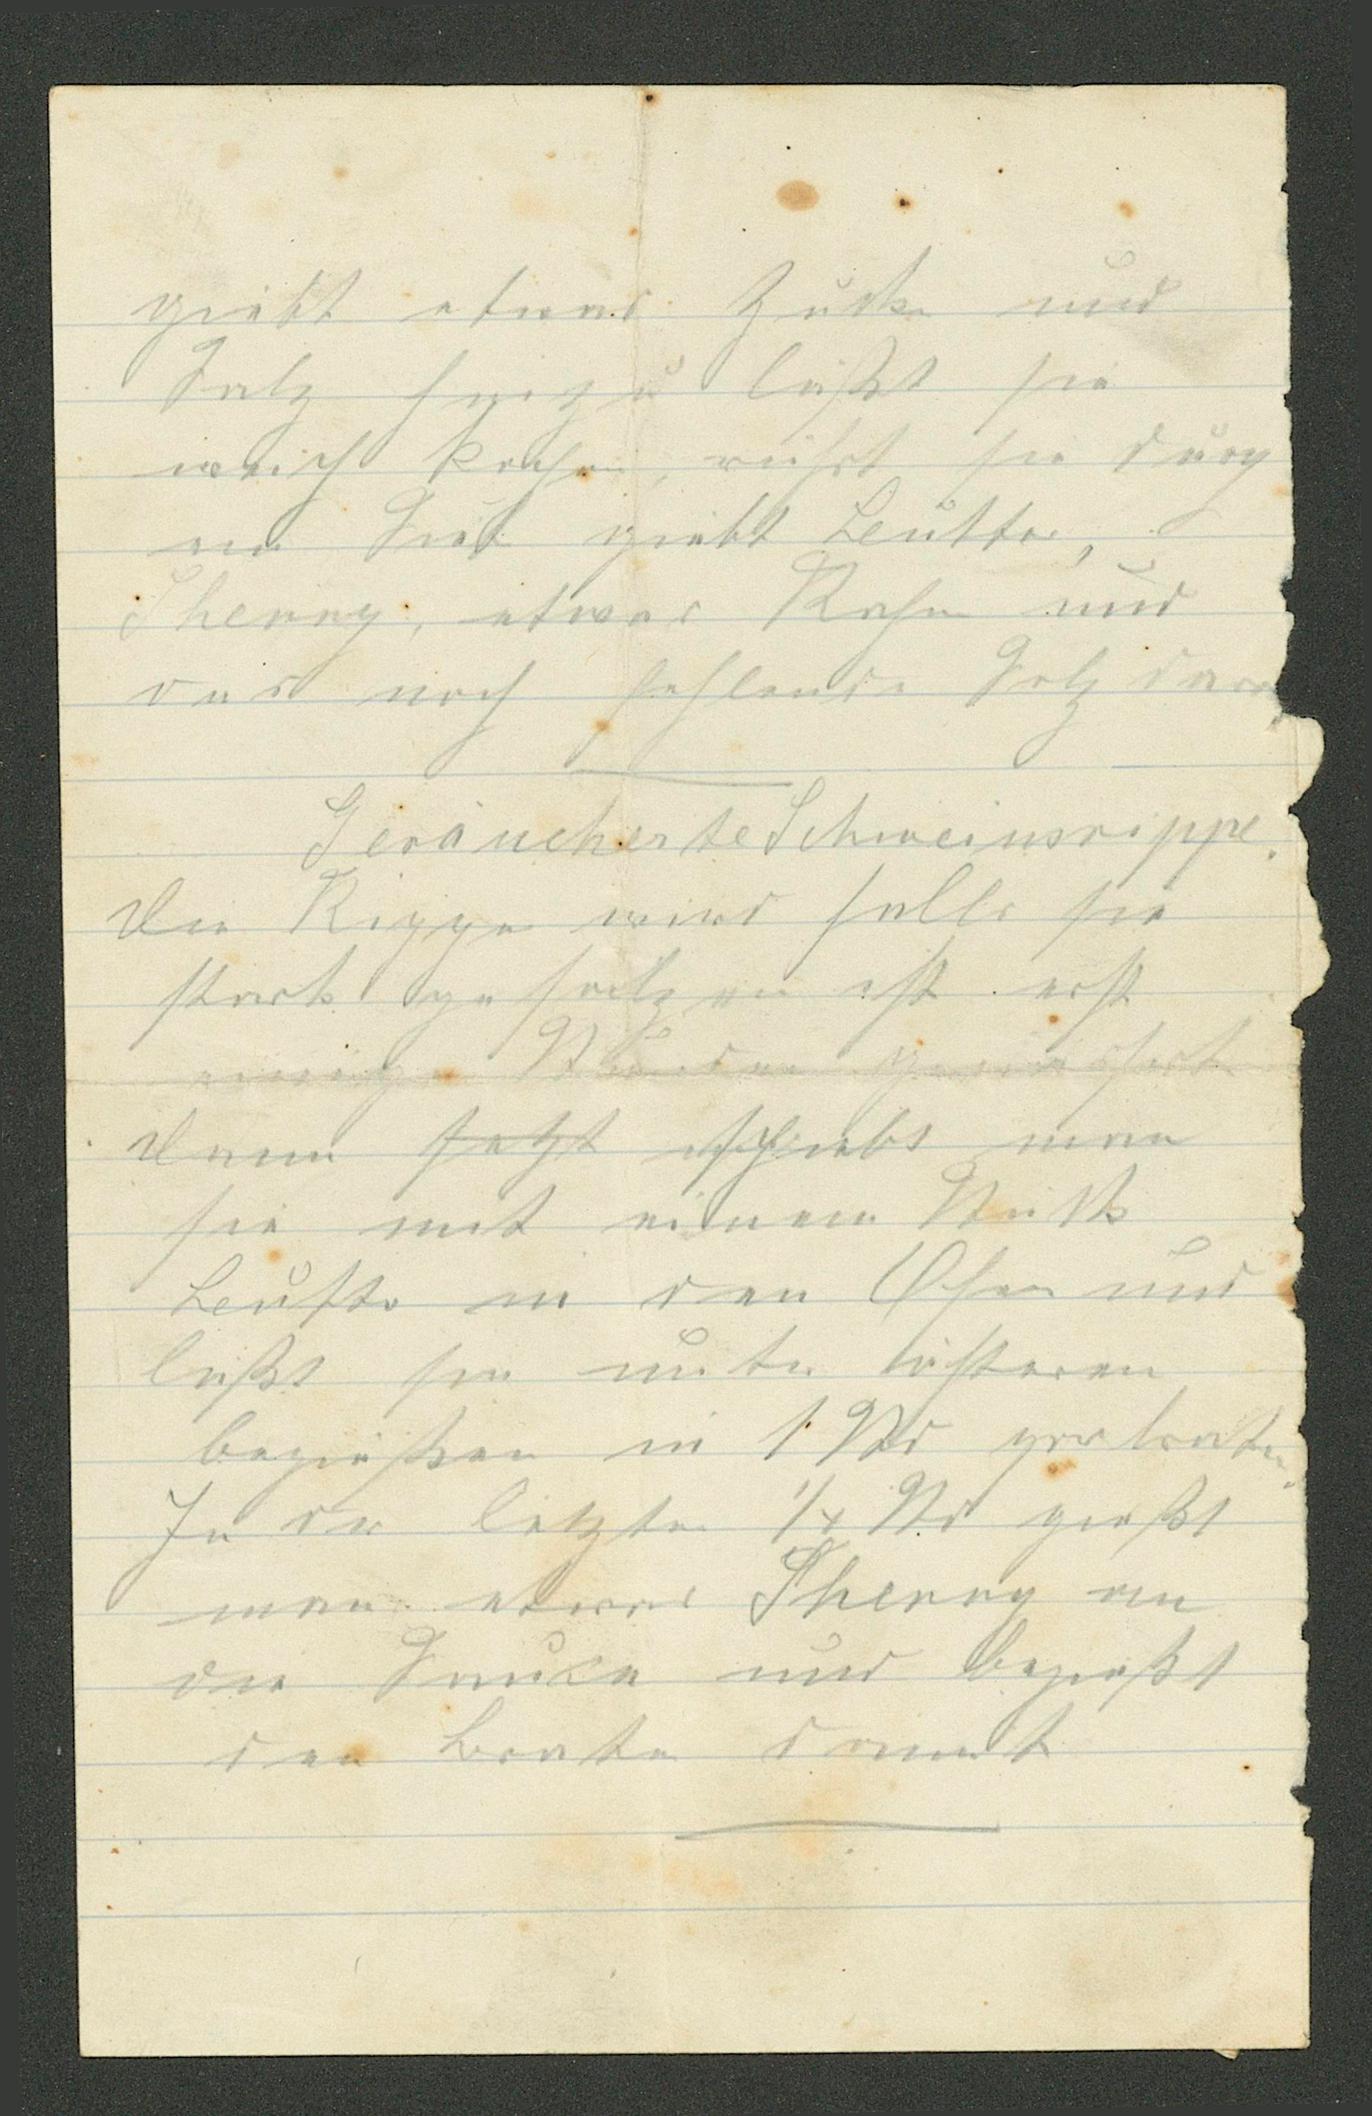 giebt etwas Zucker und
Salz hinzu läßt sie
weich kochen, rührt sie durch
ein Sieb giebt Butter,
Sherry, etwas Rahm und
das noch fehlende Salz daran
Geräucherte Schweinsrippe.
Die Rippe wird falls sie
stark gesalzen ist erst
einige Stunden gewässert
dann setzt schiebt man
sie mit einem Stück
Butter in den Ofen und
läßt sie unter öfteren
begießen in 1 Std gar braten.
In der letzten 1/4 Std gießt
man etwas Sherry an
die Sauce und begießt
den Braten damit